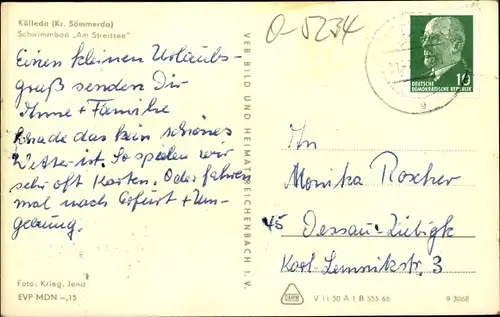 Kölleda (Kr. Sömmerda)
Schwimmbad „Am Streitsee"
Einen kleinen Urlaubs-
gruß senden Dir
Anne + Familie
Schade das kein schönes
Wetter ist. So spielen wir
sehr oft Karten. Oder fahren
mal nach Erfurt + Um-
gebung.
Foto: Krieg, Jena
EVP MDN -,15
VEB BILD UND HEIMAT REICHENBACH I. V.
O-5234
10
DEUTSCHE
DEMOKRATISCHE REPUBLIK
An
Monika Roscher
45 Dessau-Zibigk
Karl-Lemnikstr. 3
V 11 50 A 1, B 555 66
9 306E